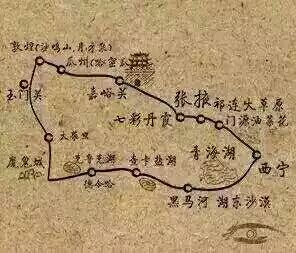 敦煌(沙鸣山,月牙泉)
瓜州(哈密瓜)
玉门关
嘉峪关
张掖
祁连大草原
七彩丹霞
门源油菜花
大柴旦
青海湖
魔鬼城
克鲁克湖
茶卡盐湖
西宁
德令哈
黑马河
湖东沙漠